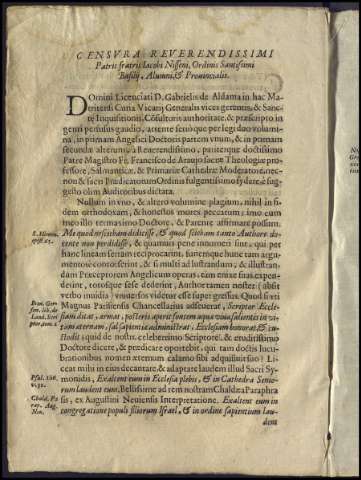 CENSVRA REVERENDISSIMI
Patris fratris Iacobi Nisseni, Ordinis Sanctissimi
Basilij, Alumni, & Prouincialis.
DOmini Licenciati D. Gabrielis de Aldama in hac Ma-
tritensi Curia Vicarij Generalis vices gerentis, & Sanc-
tæ Inquisitionis Cõsultoris authoritate, & præscripto in
genti perfusus gaudio, attente sæuò que perlegi duo volumi-
na, in primam Angelici Doctoris partem vnum, & in primam
secundæ alterum, a Reuerendissimo, pariterque doctissimo
Patre Magistro Fr. Francisco de Araujo sacræ Theologiæ pro-
fessore, Salmanticæ, & Primariæ Cathedræ Moderatore, nec-
non & sacri Prædicatorum Ordinis fulgentissimo sydere, & sug-
gesto olim Auditoribus dictata.
Nullum in vno, & altero volumine plagium, nihil in fi-
dem orthodoxam, & honestos mores peccatum; imo cum
meo illo termaximo Doctore, & Parente affirmare possim.
S. Hieron. Me quod nescieham didicisse, & quod sciebam tanto Authore do-
epist. 65. cente non perdidisse, & quamuis pene innumeri sint, qui per
hanc lineam serram reciprocarint, summeque hunc tam argu-
mentose contexerint, & si multi ad lustrandam, & illustran-
dam Præceptorem Angelicum operas,
verbo inuidia) venustior videtur esse superGratus. Quod si vt à
Magnus Parisiensis Chancellarius asseuerat, Scriptor Eccle-
siam ditat, armat, posteris aperit fontem aquæ viuæ salientis in vi-
tam æternam, sal sapientiæ administrat, Ecclesiam honorat & cu-
stodit: quid de nostro celeberrimo Scriptore, & eruditissimo
Doctore dicere, & prædicare oportebit, qui tam doctis lucu-
brationibus nomen æternum calamo sibi adquisiuit suo? Li-
ceat mihi in eius decantare, & adaptare laudem illud Sacri Sy-
Psal. 106. monidis, Exaltent eum in Ecclesia plebis, & in Cathedra Senio-
v. 32. rum laudent eum. Bellissime ad rem nostram Chaldæa Paraphra-
sis, ex Augustini Neuiensis Interpretatione. Exaltent eum in
congregatione populi filiorum Israel, & in ordine sapientium lau-
dent